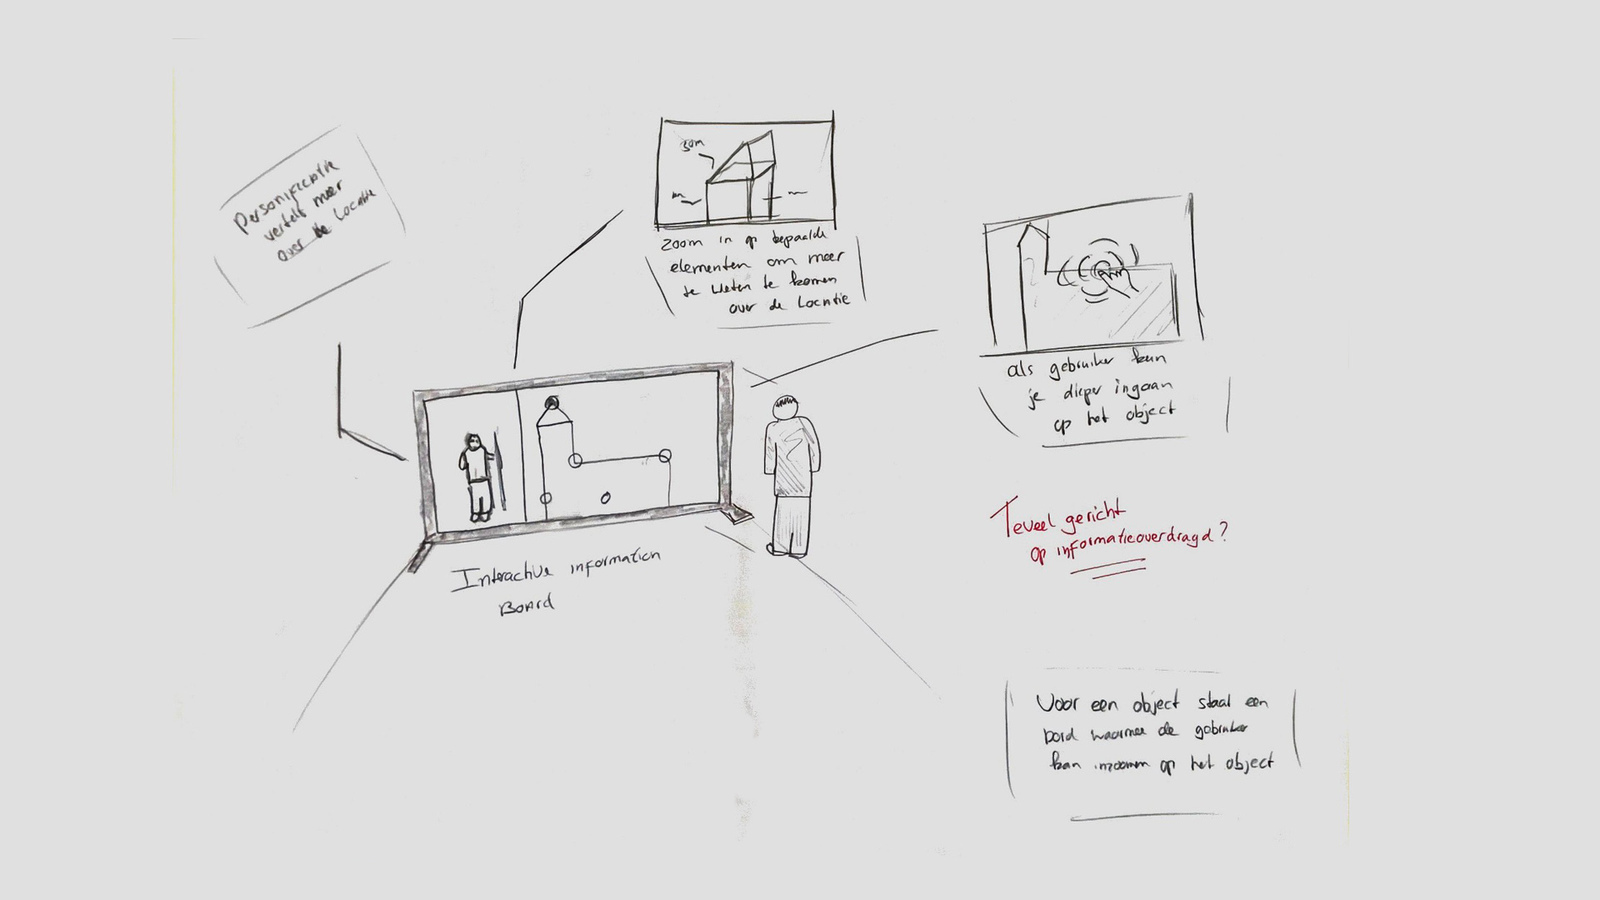 Personificatie
vertelt meer
over de Locatie
30m
zoom in op bepaalde
elementen om meer
te weten te komen
over de Locatie
als gebruiker kan
je dieper ingaan
op het object
Interactive information
Board
Teveel gericht
op informatieoverdragd?
Voor een object staat een
bord waarmee de gebruiker
kan inzoomen op het object